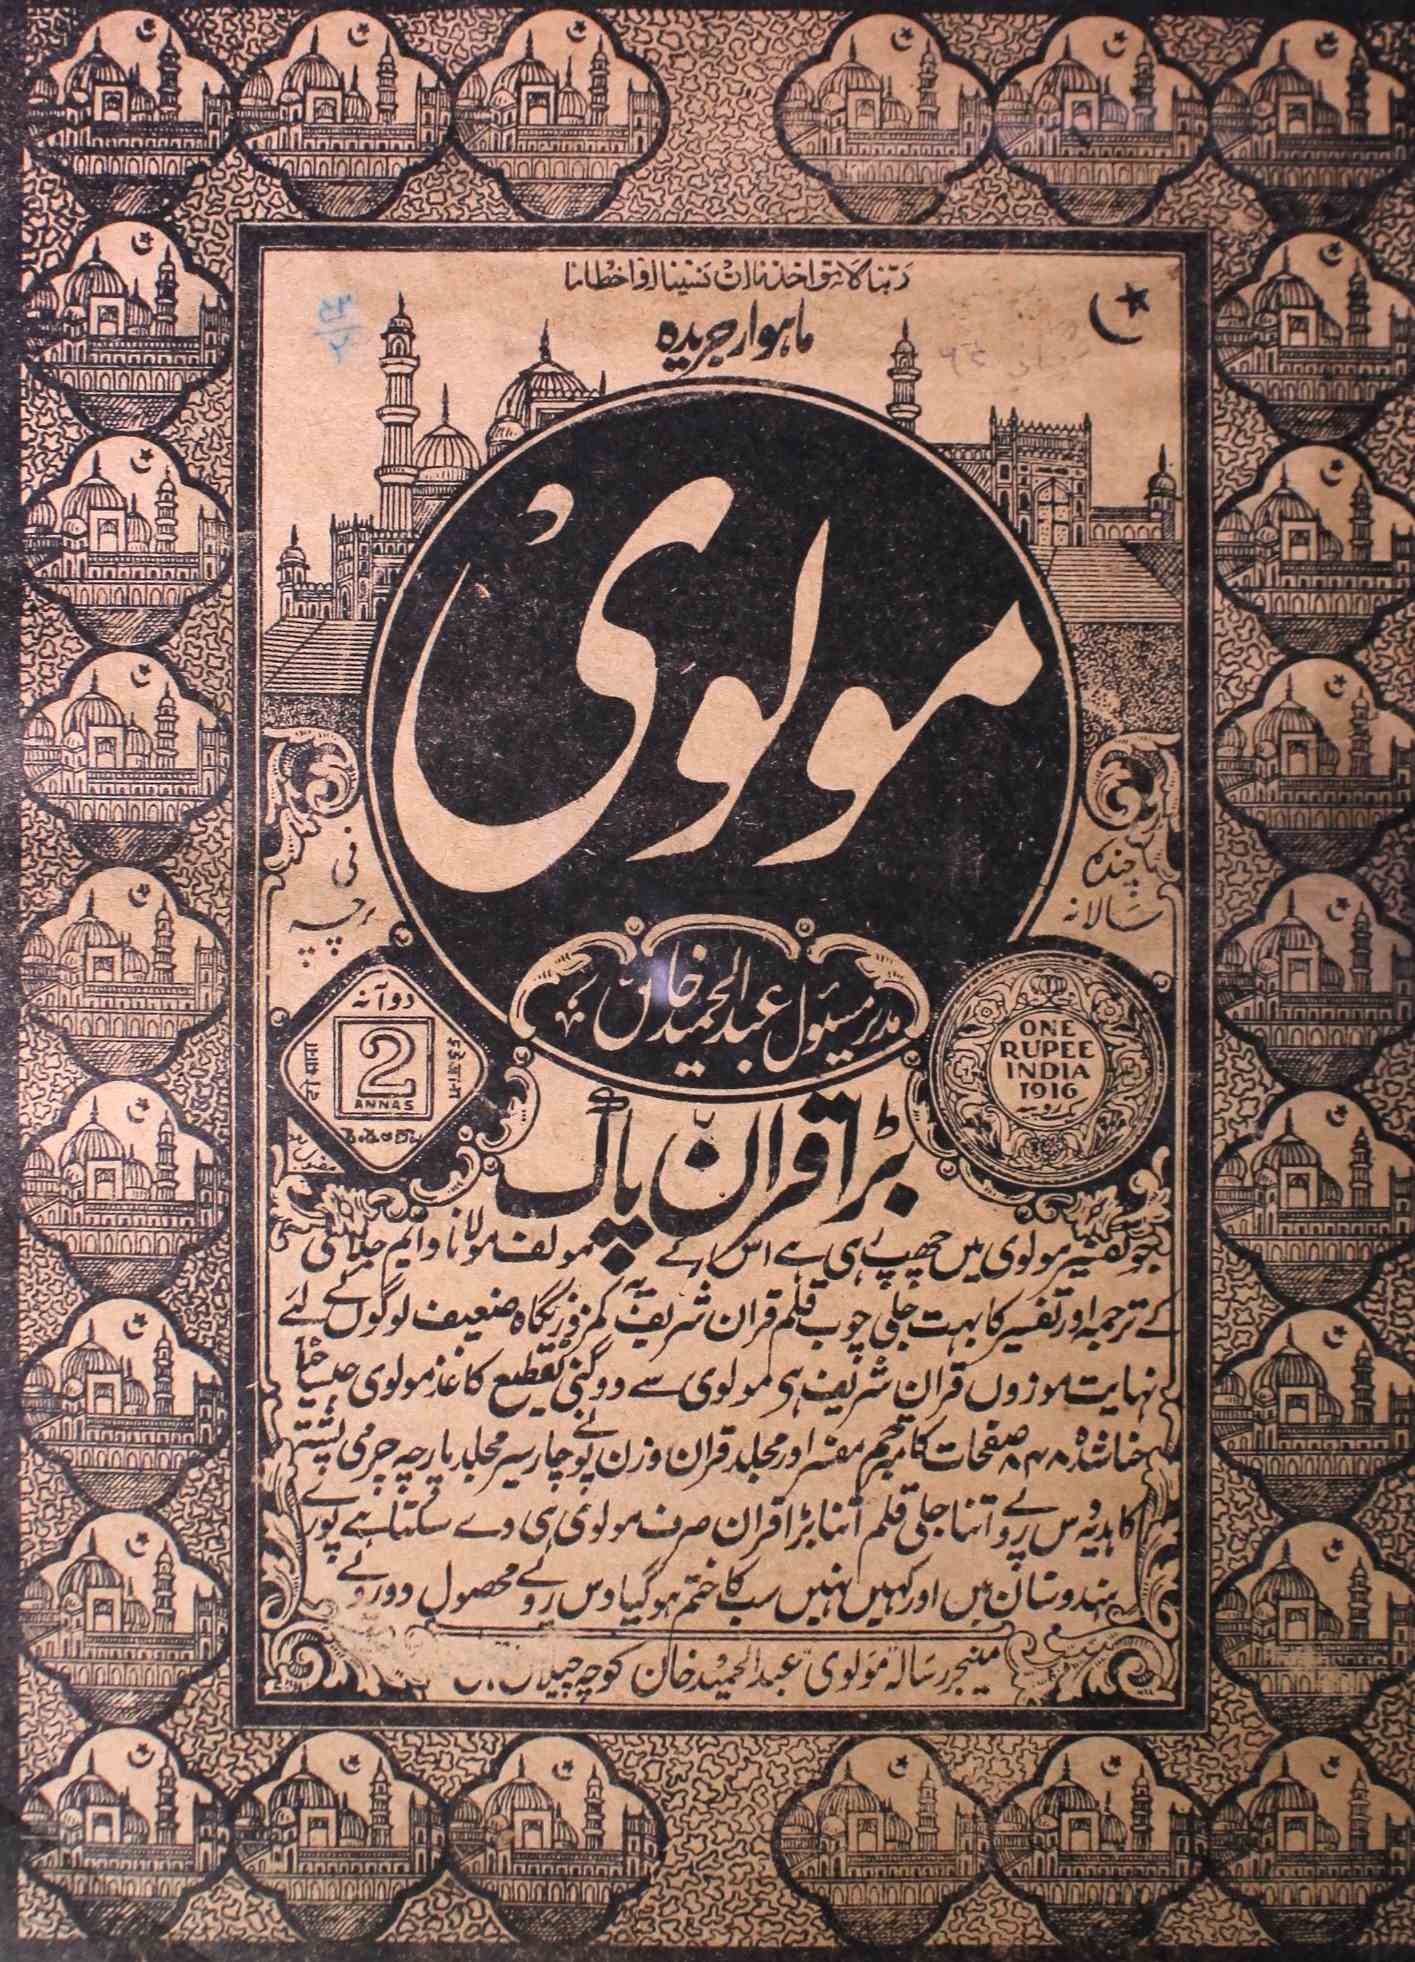 ربنا لا تؤاخذنا ان نسینا او اخطأنا
ماہوار جریدہ
مولوی
چندہ
سالانہ
فی
پرچہ
مدیر مسئول عبد الحمید خان
ONE
RUPEE
INDIA
1916
یک روپیہ
دو آنہ
2
ANNAS
दो आना
بڑا قرآن پاک
جو تفسیر مولوی میں چھپ رہی ہے اس کے مولف مولانا
کے ترجمہ اور تفسیر کا بہت جلی چوب قلم قرآن شریف یہ کمزور نگاہ ضعیف لوگوں کے لئے
نہایت موزوں قرآن شریف ہی مولوی سے دوگنی تقطیع کاغذ مولوی جیسا حنا
حنا شدہ ۸۴۸ صفحات کا مترجم مفسر اور مجلد قرآن وزن پونے چار سیر مجلد پارچہ چرمی پشتہ
کا ہدیہ دس روپے اتنا جلی قلم اتنا بڑا قرآن صرف مولوی ہی دے سکتا ہے پورے
ہندوستان میں اور کہیں نہیں سب کا ختم ہو گیا دس روپے محصول دو روپے
منیجر رسالہ مولوی عبد الحمید خان کوچہ چیلان